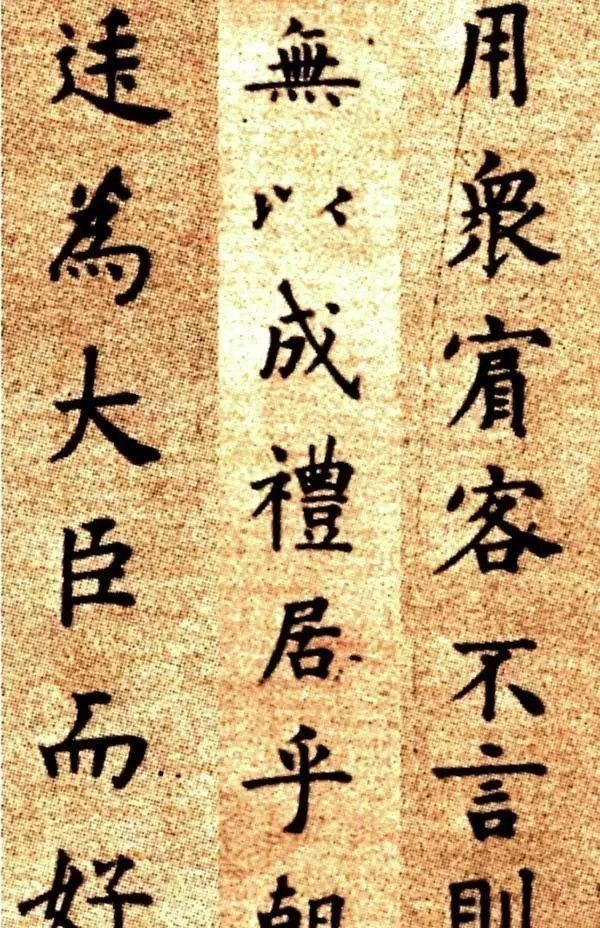 用眾賔客不言則
無以成禮居乎朝
廷為大臣而好